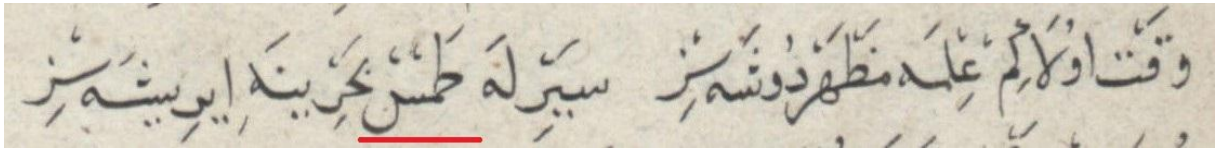 وَقْتْ اوُلَا كِمْ عِلْمَه مَظْهَرْ دُوشَه سِزْ سَيْرِ لَه طَمْسْ بَحْرِينَه اِيرِيشَه سِزْ